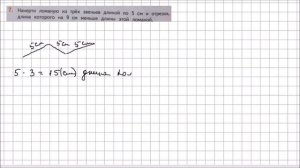 7. Начерти ломаную из трёх звеньев длиной по 5 см и отрезок, длина которого на 9 см меньше длины этой ломаной.
5см 5см 5см
5 · 3 = 15 (см) длина ло